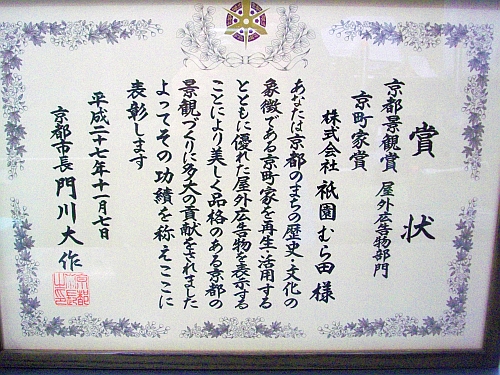 賞状
京都景観賞 屋外広告物部門
京町家賞
株式会社 祇園 むら田 様
あなたは京都のまちの歴史・文化の
象徴である京町家を再生・活用する
とともに優れた屋外広告物を表示する
ことにより美しく品格のある京都の
景観づくりに多大の貢献をされました
よってその功績を称えここに
表彰します
平成二十七年十一月七日
京都市長 門川大作